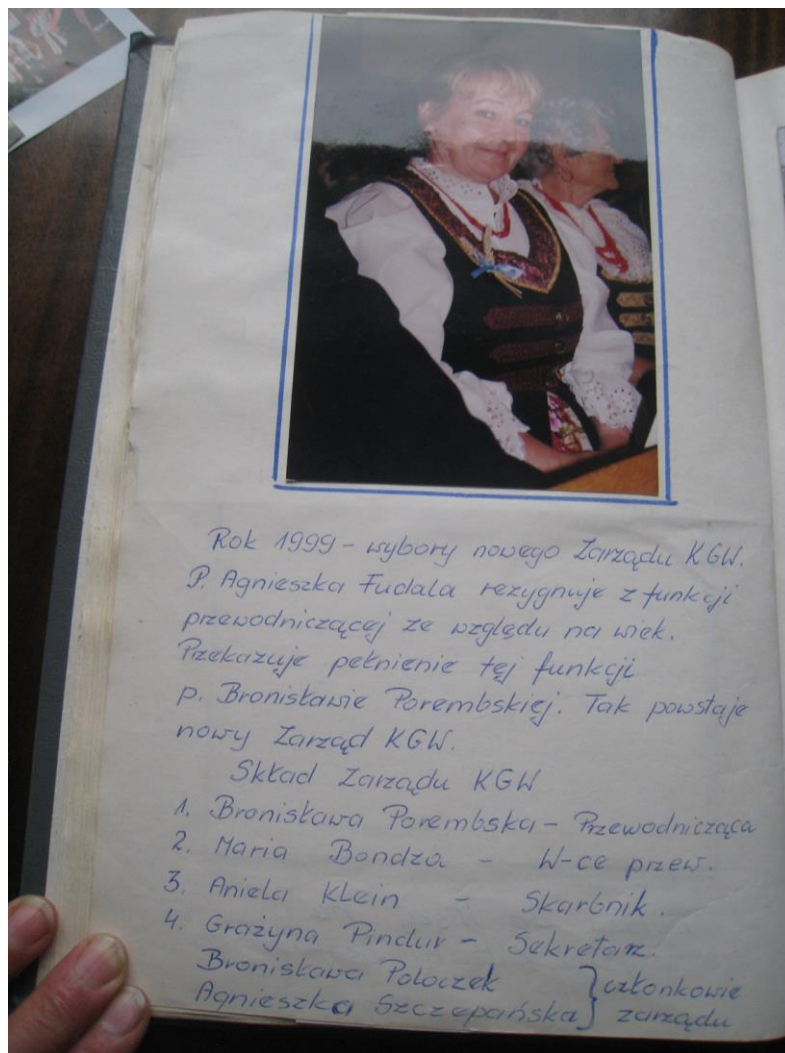 Rok 1999 - wybory nowego Zarządu KGW.
P. Agnieszka Fudala rezygnuje z funkcji
przewodniczącej ze względu na wiek.
Przekazuje pełnienie tej funkcji
p. Bronisławie Porembskiej. Tak powstaje
nowy Zarząd KGW.
Skład Zarządu KGW
1. Bronisława Porembska - Przewodnicząca
2. Maria Bondza - W-ce przew.
3. Aniela Klein - Skarbnik.
4. Grażyna Pindur - Sekretarz.
Bronisława Poloczek } członkowie
Agnieszka Szczepańska } zarządu